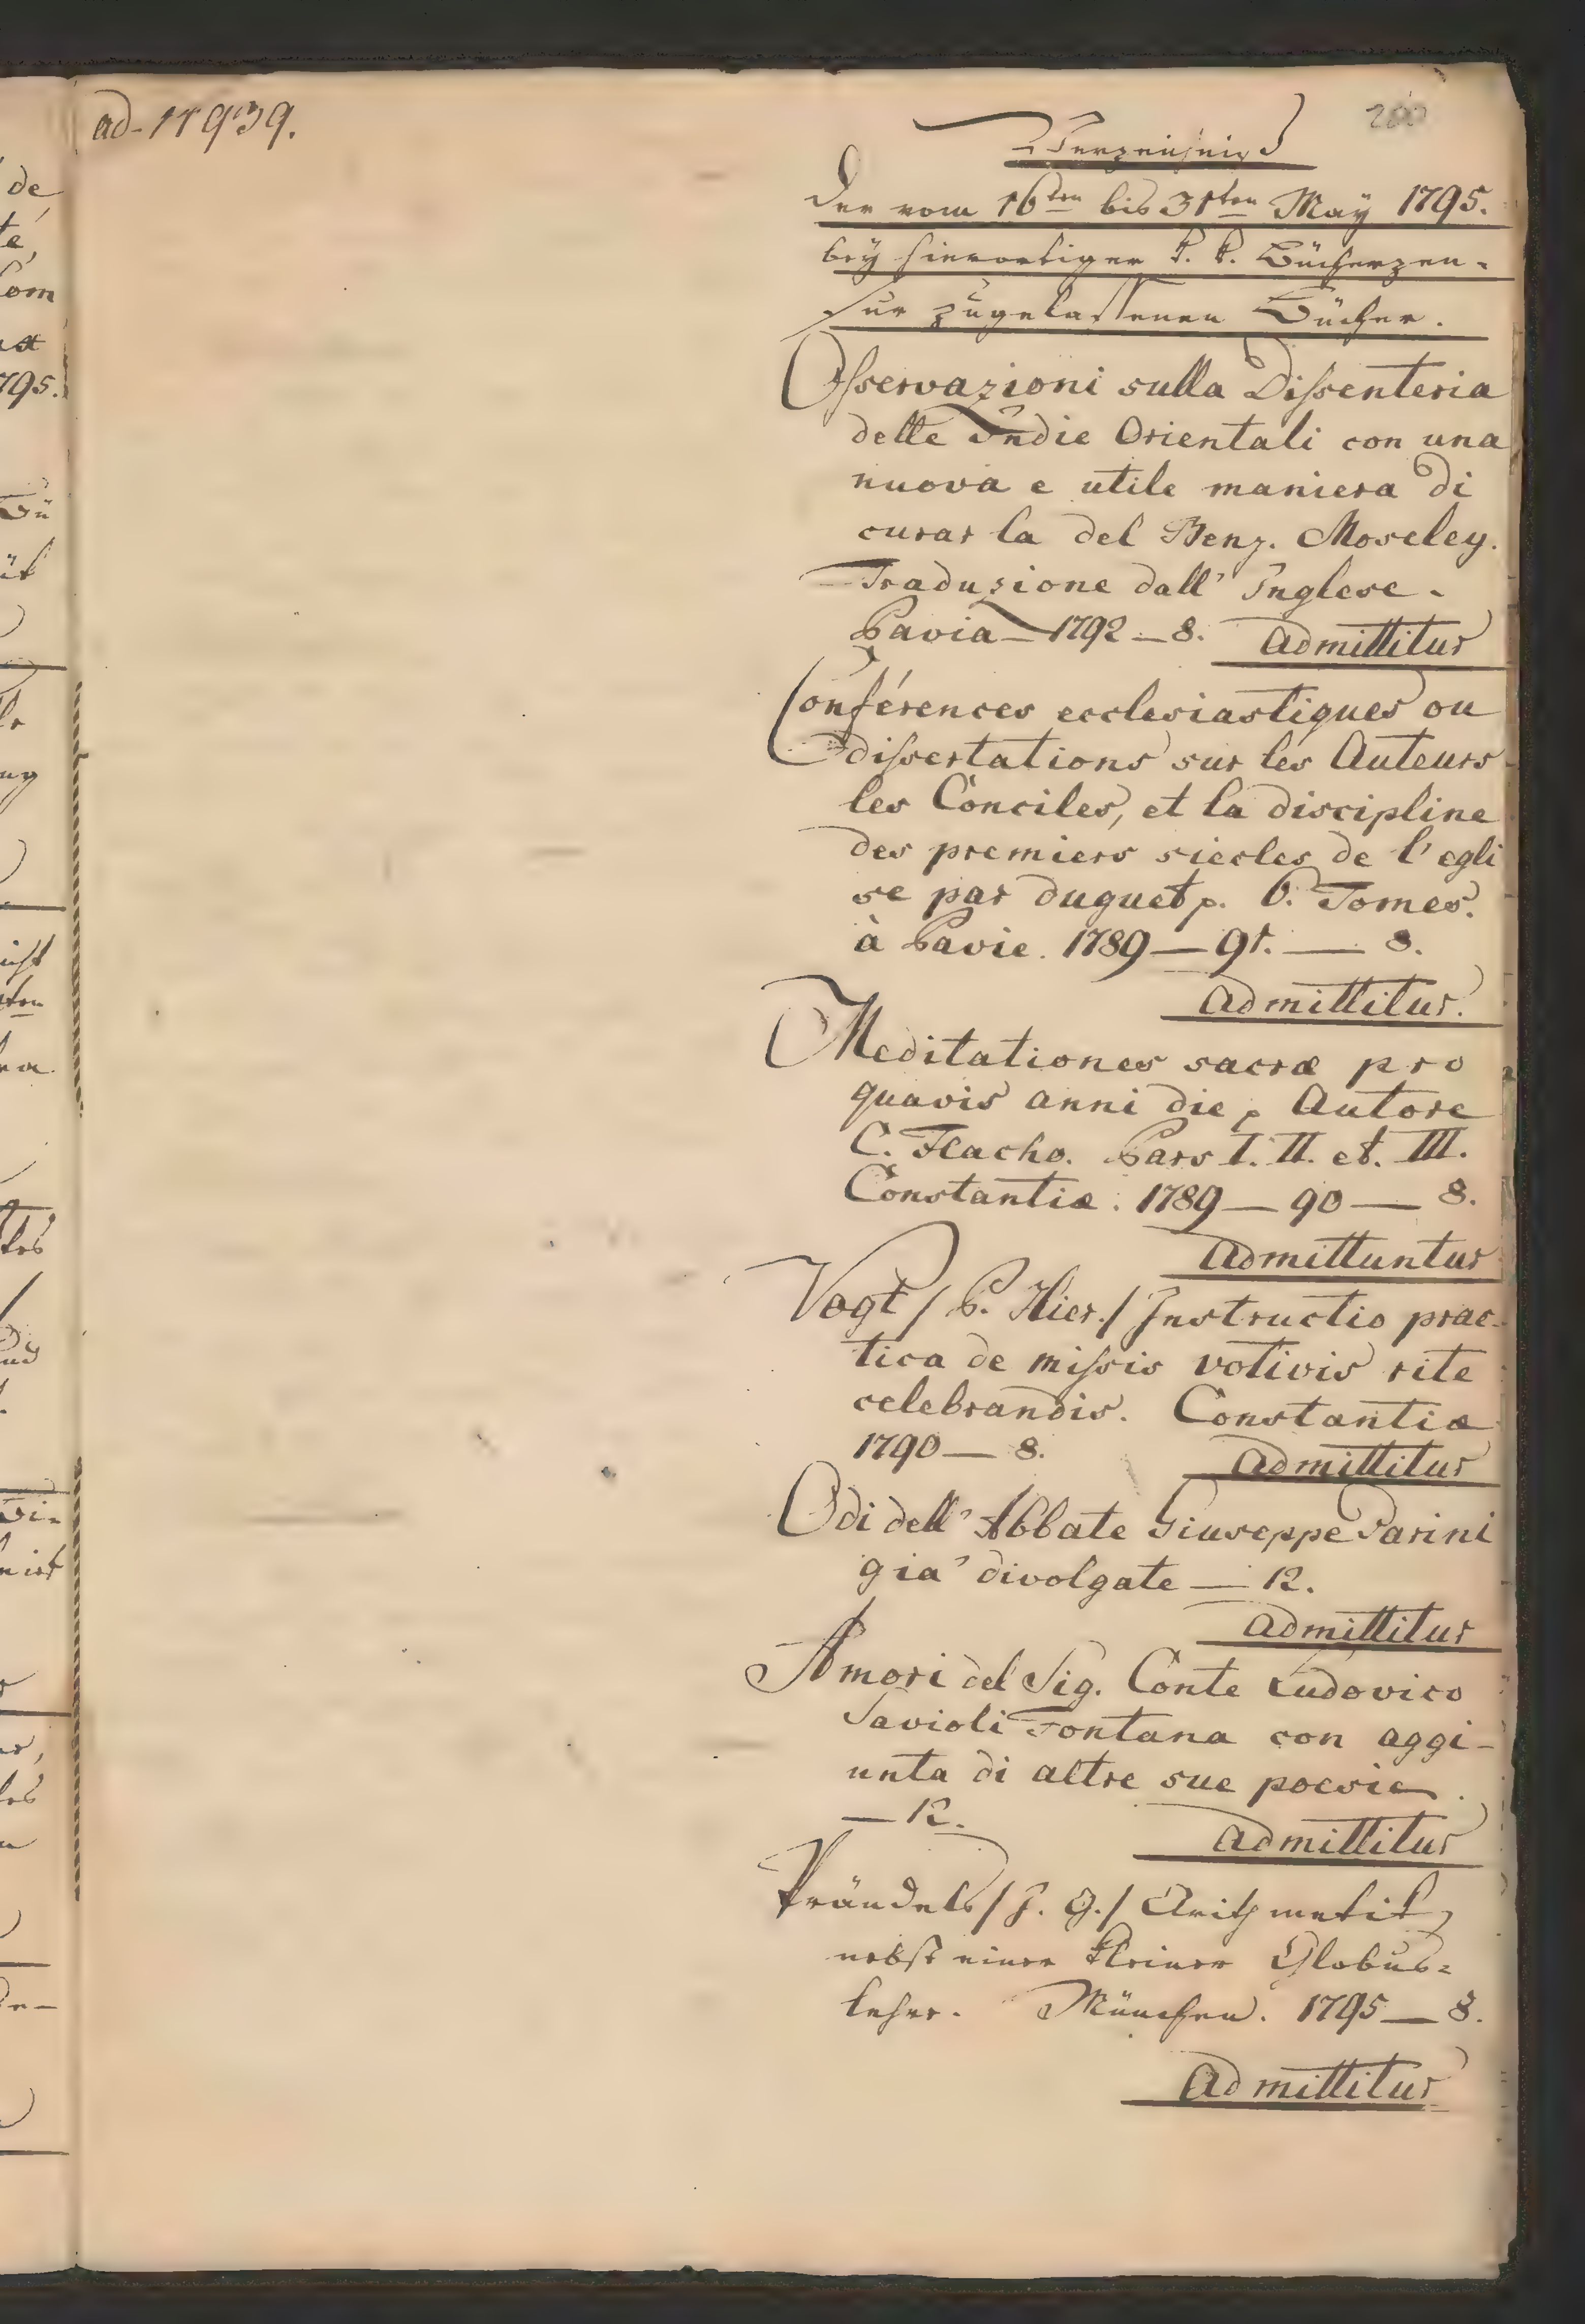 ad 11939.
200
Verzeichniß
der vom 16ten bis 31ten May 1795.
bey hierortiger k. k. Bücherzen-
sur zugelassenen Bücher.
Osservazioni sulla Dissenteria
delle Indie Orientali con una
nuova e utile maniera di
curar la del Benj. Moseley.
Traduzione dall' Inglese.
Pavia — 1792 — 8. Admittitur
Conférences ecclesiastiques ou
dissertations sur les Auteurs
les Conciles, et la discipline
des premiers siecles de l'egli
se par duguet p. 6. Tomes.
à Pavie. 1789 — 91. — 8.
Admittitur.
Meditationes sacræ pro
quavis anni die p Autore
C. Hacho. Pars I. II. et. III.
Constantiæ. 1789 — 90 — 8.
Admittuntur
Vogt / P. Hier. / Instructio prac-
tica de missis votivis rite
celebrandis. Constantiæ
1790 — 8. Admittitur
Odi dell' Abbate Giuseppe Parini
gia' divolgate — 12.
Admittitur
Amori del Sig. Conte Ludovico
Savioli Fontana con aggi-
unta di altre sue poesie.
— 12.
Admittitur
Prändels / J. G. / Arithmetik,
nebst einer kleiner Globus-
lehre. München. 1795 — 8.
Admittitur